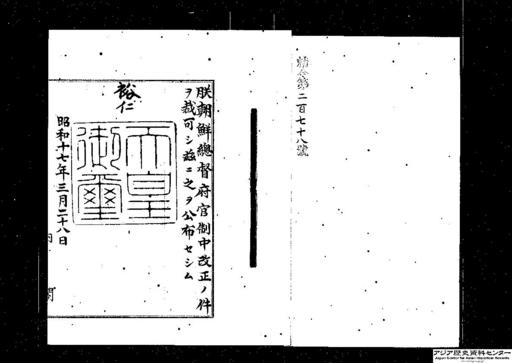 勅令第二百七十八號
朕朝鮮總督府官制中改正ノ件
ヲ裁可シ茲ニ之ヲ公布セシム
裕仁
天皇
御璽
昭和十七年三月二十八日
内閣
アジア歴史資料センター
Japan Center for Asian Historical Records